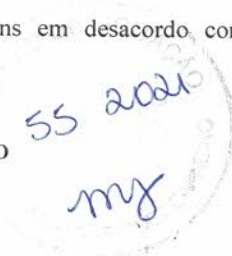 ns em desacordo con
o 55 2021